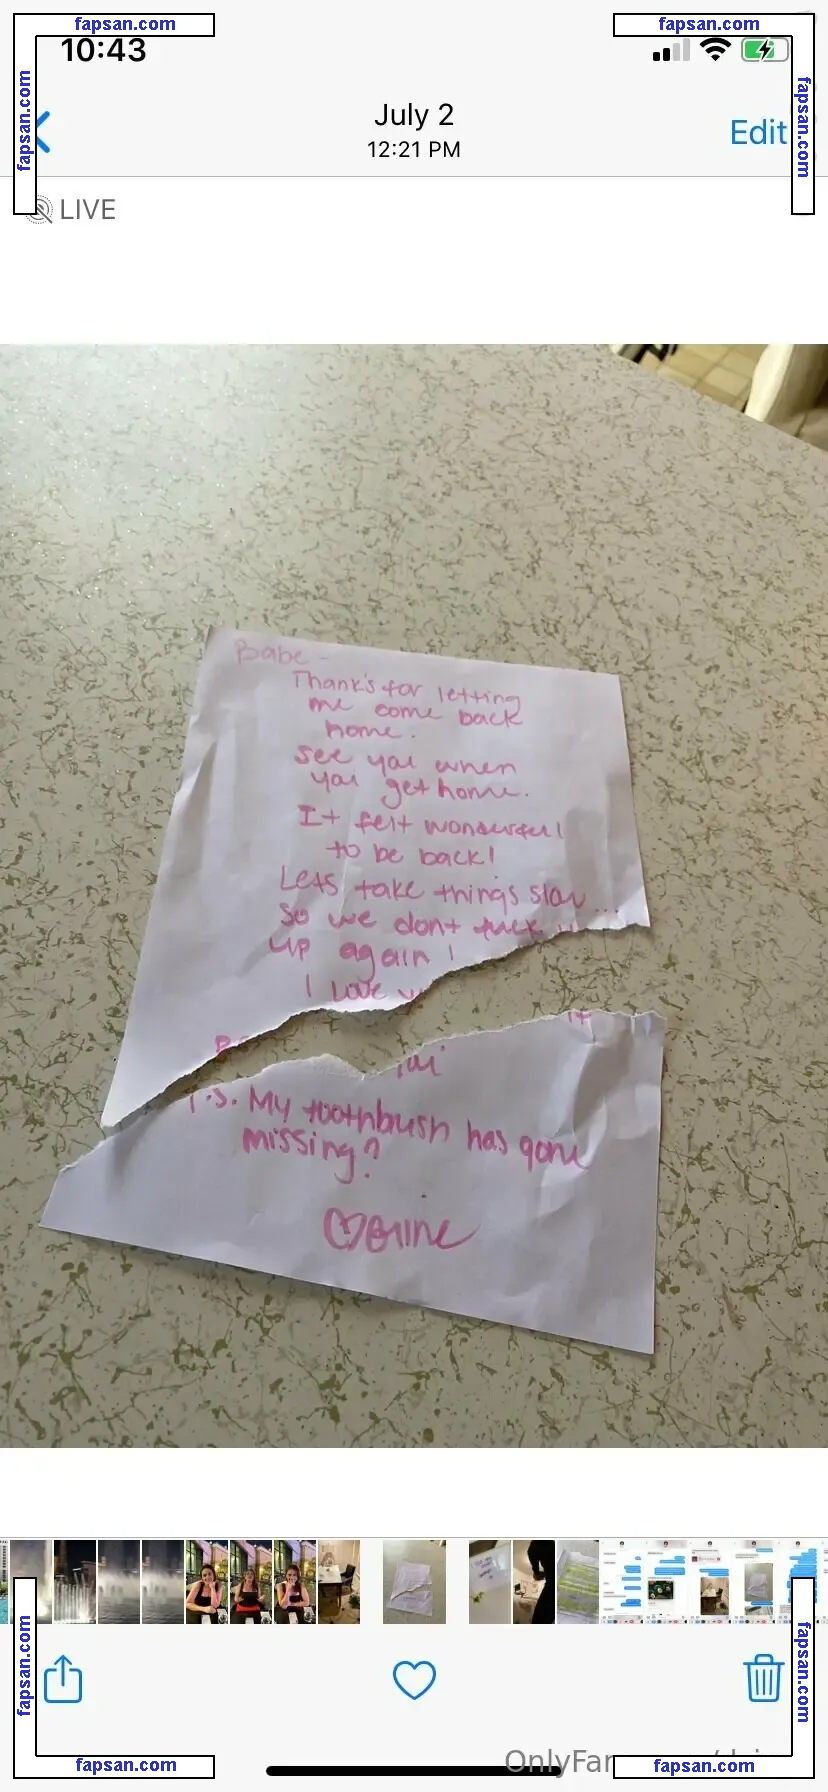 fapsan.com
fapsan.com
10:43
July 2
12:21 PM
Edit
fapsan.com
fapsan.com
LIVE
Babe -
Thank's for letting
me come back
home.
See you when
you get home.
It felt wonderful
to be back!
Lets take things slow...
So we dont fuck
up again!
I Love
P.S. My toothbush has gone
missing?
fapsan.com
fapsan.com
OnlyFan
fapsan.com
fapsan.com